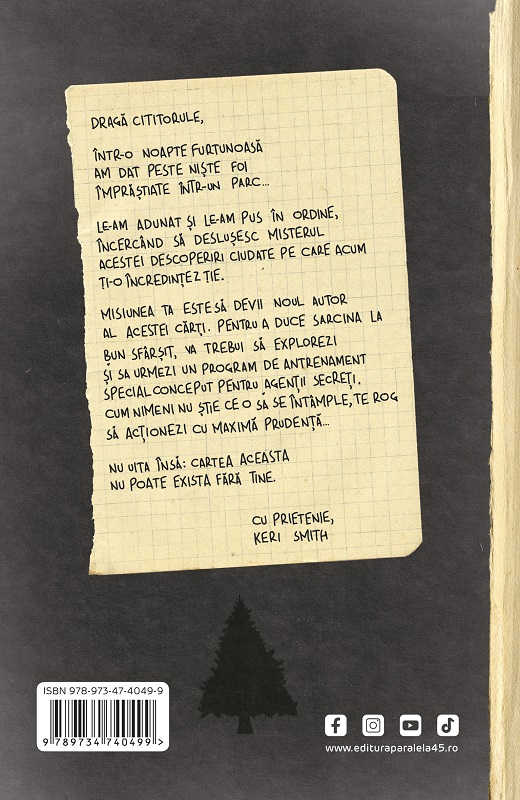 DRAGĂ CITITORULE,
ÎNTR-O NOAPTE FURTUNOASĂ
AM DAT PESTE NIȘTE FOI
ÎMPRĂȘTIATE ÎNTR-UN PARC...
LE-AM ADUNAT ȘI LE-AM PUS ÎN ORDINE,
ÎNCERCÂND SĂ DESLUȘESC MISTERUL
ACESTEI DESCOPERIRI CIUDATE PE CARE ACUM
ȚI-O ÎNCREDINȚEZ ȚIE.
MISIUNEA TA ESTE SĂ DEVII NOUL AUTOR
AL ACESTEI CĂRȚI. PENTRU A DUCE SARCINA LA
BUN SFÂRȘIT, VA TREBUI SĂ EXPLOREZI
ȘI SA URMEZI UN PROGRAM DE ANTRENAMENT
SPECIAL CONCEPUT PENTRU AGENȚII SECREȚI.
CUM NIMENI NU ȘTIE CE O SĂ SE ÎNTÂMPLE, TE ROG
SĂ ACȚIONEZI CU MAXIMĂ PRUDENȚĂ...
NU UITA ÎNSĂ: CARTEA ACEASTA
NU POATE EXISTA FĂRĂ TINE.
CU PRIETENIE,
KERI SMITH
ISBN 978-973-47-4049-9
9 789734 740499 >
www.edituraparalela45.ro